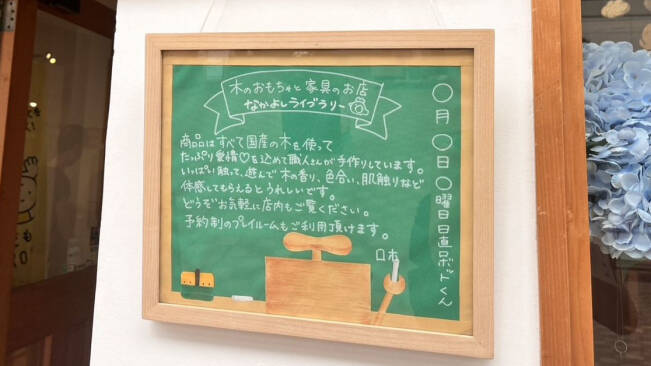 木のおもちゃと家具のお店
なかよしライブラリー
商品はすべて国産の木を使って
たっぷり愛情♡を込めて職人さんが手作りしています。
いっぱい触って、遊んで木の香り、色合い、肌触りなど
体感してもらえるとうれしいです。
どうぞお気軽に店内もご覧ください。
予約制のプレイルームもご利用頂けます。
○月○日○曜日日直ロボットくん
ロボ